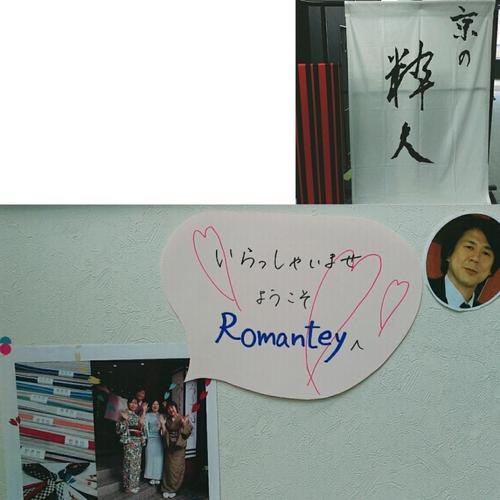 京の
粋人
いらっしゃいませ
ようこそ
Romanteyへ